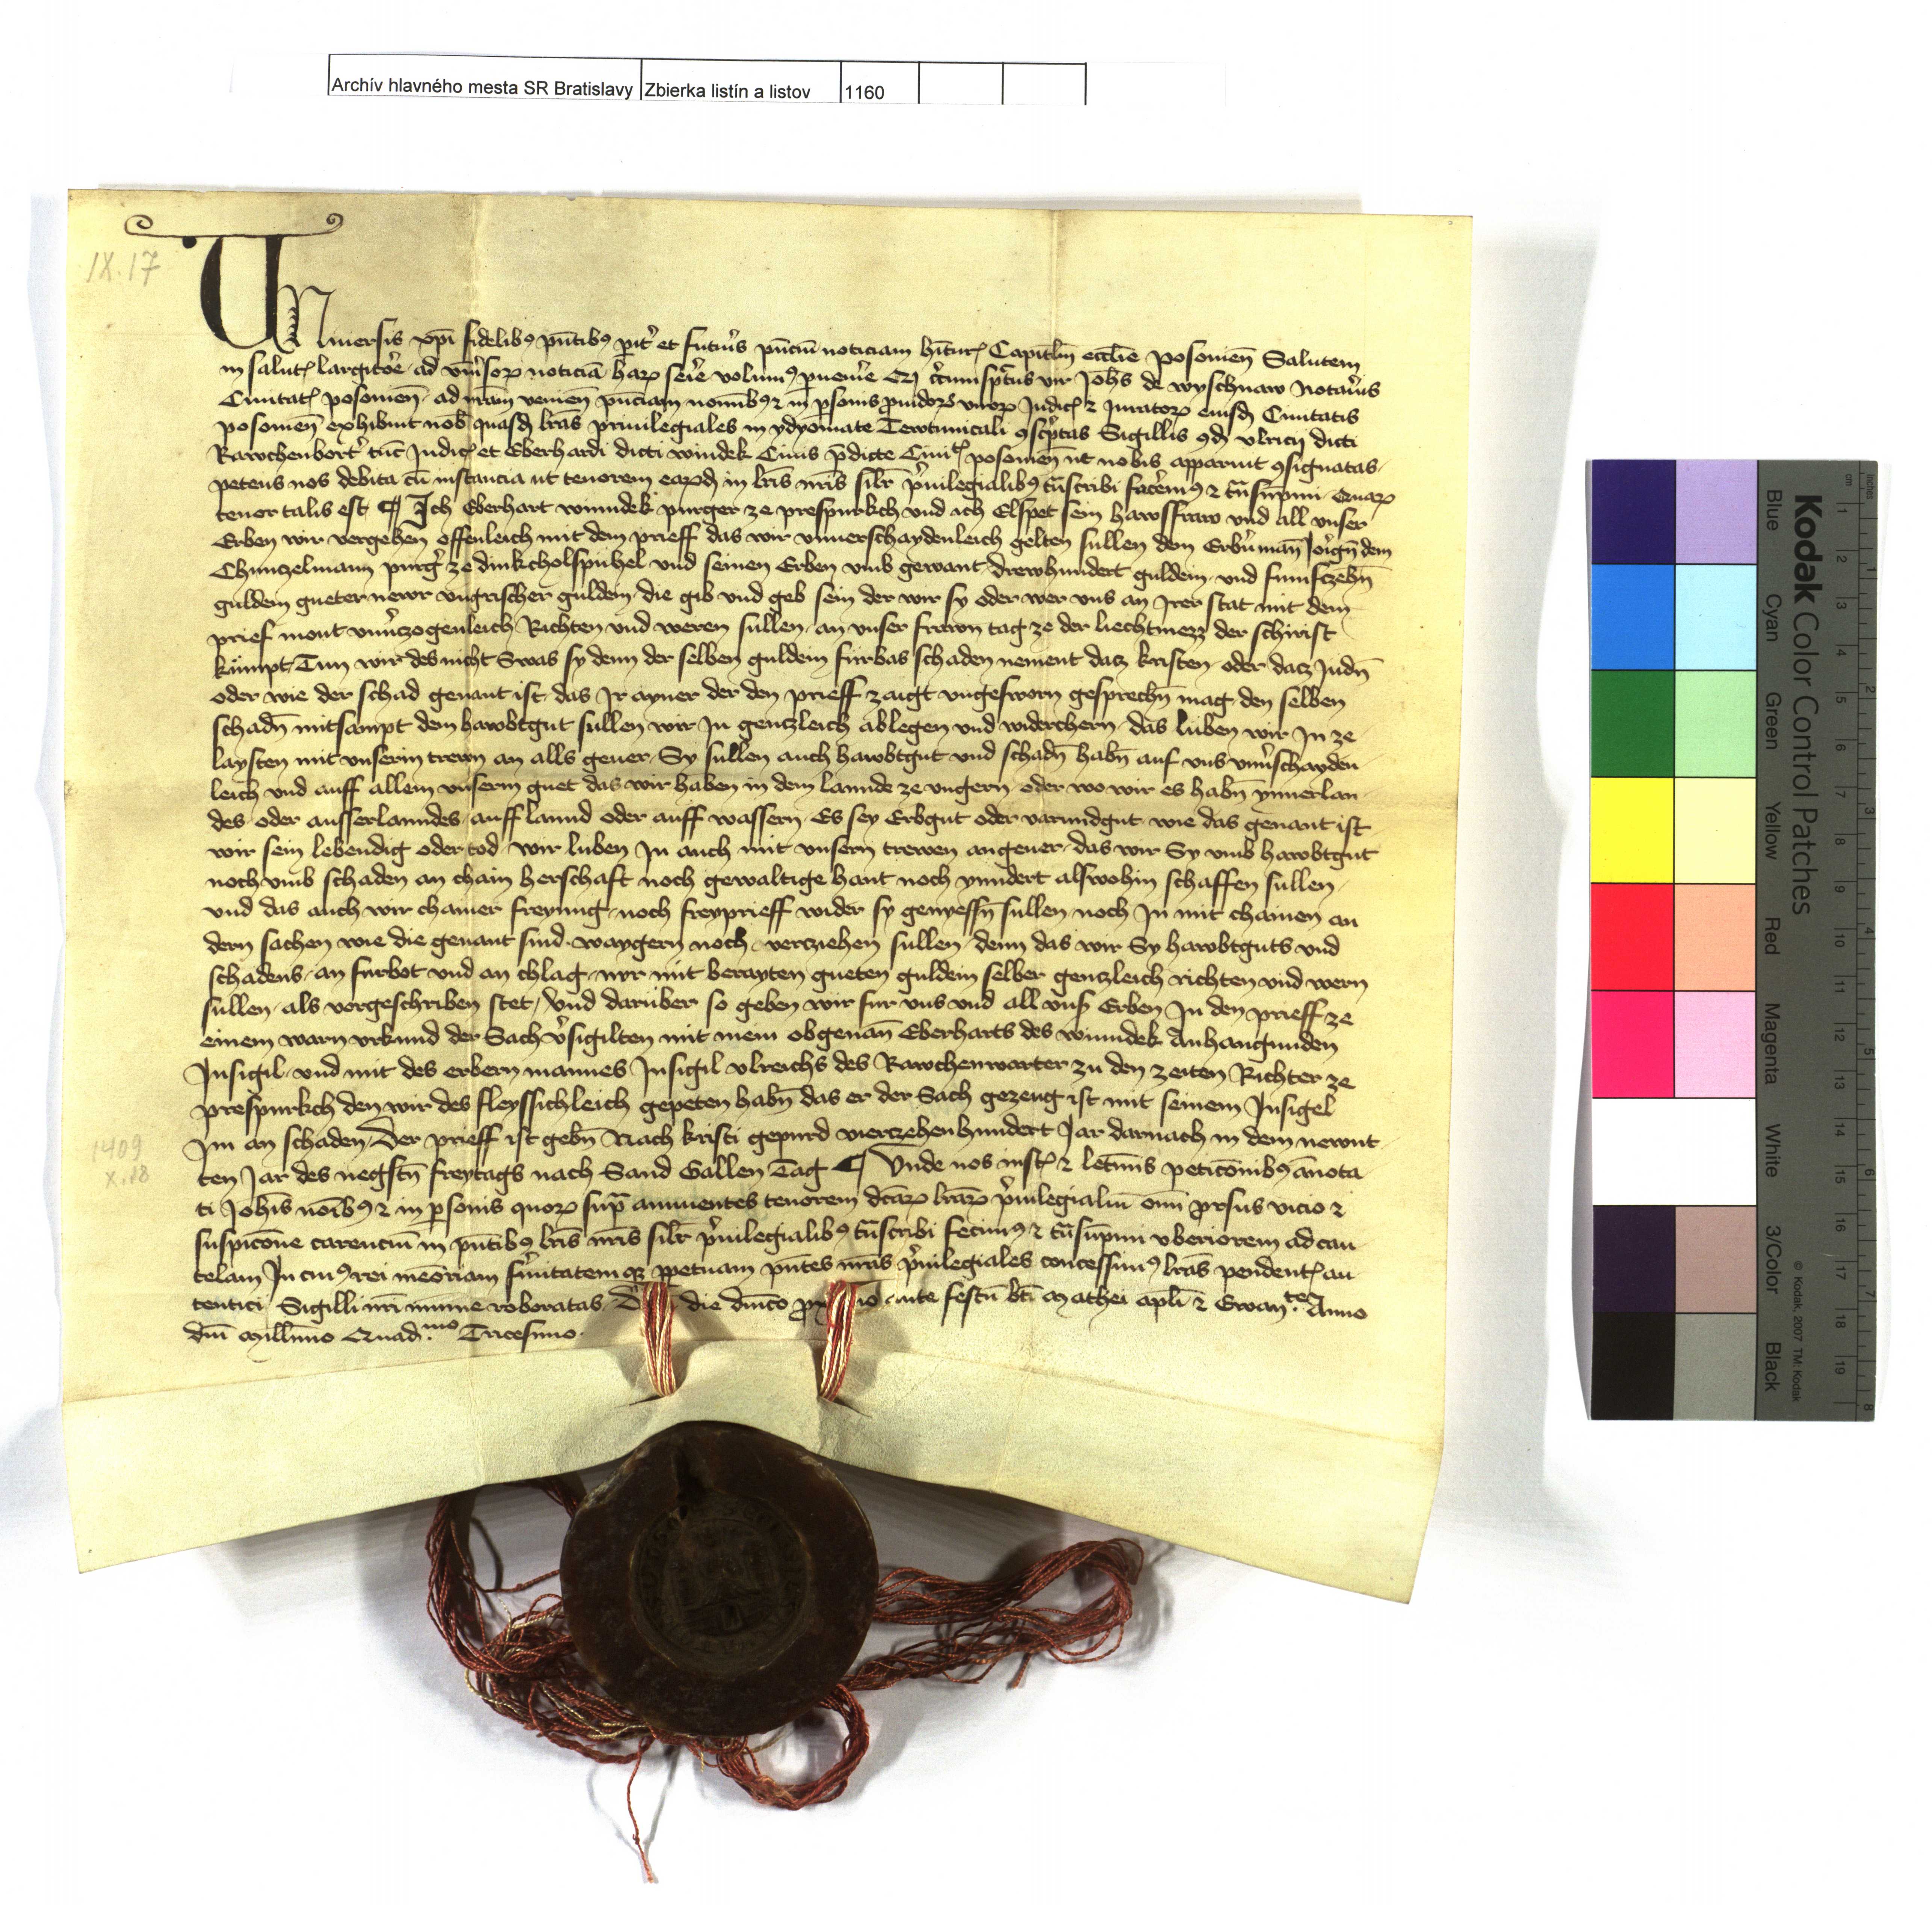 Archív hlavného mesta SR Bratislavy Zbierka listín a listov 1160
IX. 17
Uniuersis xpi fidelibꝰ pn̄tibꝰ pit͛ et futur͛s pn̄ciū noticiam hītur̄ Capitlm̄ ecclīe posonien̄ Salutem
in salut̄ largitor͛e ad vniūsoꝝ noticiā haꝝ ser͛e volumꝰ puenir͛e Qꝫ circ͛umspctus vir Joh̄s de wyschnaw Notari͛us
Ciuitat̄ posonien̄ ad nr̄am venien̄ pn̄ciam nomībꝰ ⁊ in psonis prouidoꝝ viroꝝ Judic̄ ⁊ Juratoꝝ eiusdꝫ Ciuitatis
posonien̄ exhibuit nob̄ quasdꝫ lr̄as priuilegiales in ydyomate Tewtunicali ꝯscr͛ptas Sigillis ꝯdꝫ vlrici dicti
Rawchenbort͛ tūc Judic̄ et Eberhardi dicti windek Ciuis p̄dicte Ciuit̄ posonien̄ ut nobis apparuit ꝯsignatas
petens nos debita cū instancia ut tenorem eaꝝdꝫ in lr̄is nr̄is silr̄ pr͛uilegialibꝰ tn̄scribi facer͛emꝰ ⁊ tn̄sūpmi Quaꝝ
tenor talis est ¶ Ich Eberhart winndek purger ze prespurkch vnd ich Elspet sein hawsfraw vnd all vnser
Erben wir vergehen offenleich mit dem prieff das wir vnuerschaydenleich gelten sullen dem Erbn̄ man̄ Jorgn̄ dem
Chunczelmann purg͛ ze dinkcholspuhel vnd seinen Erben vmb gewant drewhundert guldein vnd funfczehn̄
guldein gueter newr vngrischer guldein die gib vnd geb sein der wir sy oder wer vns an Irer stat mit dem
prief mont vnuerczogenleich Richten vnd weren sullen an vnser frawn tag ze der liechtmezz der schirist
kümpt Tun wir des nicht Swas sy denn der selben guldein furbas schaden nement datz kristen oder datz Judn̄
oder wie der schad genant ist das Ir ayner der den prieff zaigt vngesworn gesprechn̄ mag den selben
schadn̄ mitsampt dem hawbtgut sullen wir In genczleich ablegen vnd widerchern das luben wir In ze
laysten mit vnserin trewn an alls geuer Sy sullen auch hawbtgut vnd schadn̄ habn̄ auf vns vnuerschayden
leich vnd auff allem vnserm guet das wir haben in dem lannde ze vngern oder wo wir es habn̄ ynnerlan
des oder ausserlanndes auff lannd oder auff wassern Es sey Erbgut oder varundgut wie das genant ist
wir sein lebendig oder tod wir luben In auch mit vnsern trewen angeuer das wir Sy vmb hawbtgut
noch vmb schaden an chain herschaft noch gewaltige hant noch ynndert alswohin schaffen sullen
vnd das auch wir chainer freyung noch freyprieff wider sy genyessn̄ sullen noch In mit chainen an
dern sachen wie die genant sind waygern noch verziehen sullen denn das wir Sy hawbtguts vnd
schadens an furbot vnd an chlag nyr mit berayten gueten guldein selber genczleich richten vnd wern
sullen als vorgeschriben stet Vnd darüber so geben wir fur vns vnd all vnsꝛ Erben In den prieff ze
einem warn vrkund der Sach v͛sigilten mit mein obgenan̄ Eberharts des winndek Anhangunden
Insigil vnd mit des erbern mannes Insigil vlreichs des Rawchenwarter zu den zeiten Richter ze
prespurkch den wir des fleyssichleich gepeten habn̄ das er der Sach gezeug ist mit seinem Insigel
Im an schaden Der prieff ist gebn̄ Nach kristi gepurd vierczehenhundert Jar darnach in dem newnt
ten Jar des negstn̄ freytags nach Sand Gallen Tag ¶ Vnde nos iust̄ ⁊ letn̄mis peticōnibꝰ ānota
ti Joh̄is noīībꝰ ⁊ in psonis quoꝝ sup̄ annuentes tenorem dc̄aꝝ lr̄aꝝ pr͛uilegialiū om̄i prsus vicio ⁊
suspicōne carenciū in pn̄tibꝰ lr̄is nr̄is silr̄ pr͛uilegialibꝰ tn̄scribi fecimꝰ ⁊ tn̄sūpmi vberiorem ad cau
telam In cuiꝰ rei mēoriam fir͛mitatemqꝫ ppetuam pn̄tes nr̄as pr͛uilegiales concessimꝰ lr̄as pendent̄ au
tentici Sigilli nr̄i munīe roboratas die dn̄ico ante festū bt̄i Mathei apli ⁊ Ewan.te Anno
dn̄i Mill̄mo Quad.mo Tricesimo
1409
X. 18
Kodak Color Control Patches
© Kodak, 2007 TM: Kodak
Blue Cyan Green Yellow Red Magenta White 3/Color Black
inches 1 2 3 4 5 6 7 8
cm 1 2 3 4 5 6 7 8 9 10 11 12 13 14 15 16 17 18 19